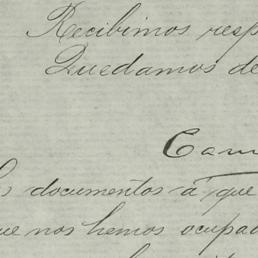 Recibimos resp
Quedamos de
Cam
s documentos á que
ue nos hemos ocupad